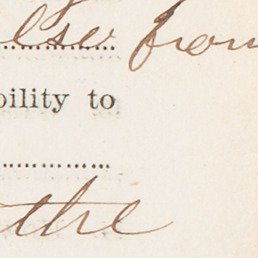 else from
bility to
the